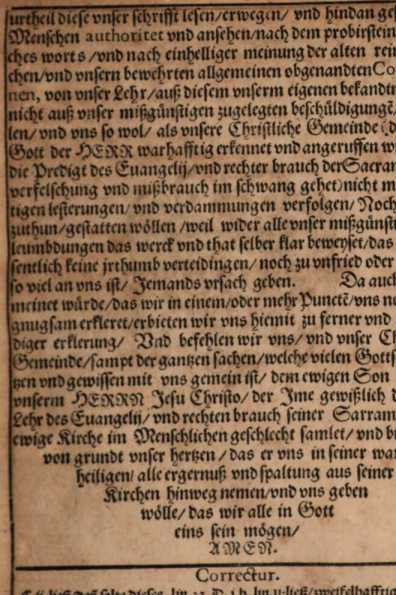 urtheil diese vnser schrifft lesen/erwegen/ vnd hindan ges
Menschen authoritet vnd ansehen/nach dem probirstein
ches worts/vnd nach einhelliger meinung der alten rein
chen/vnd vnsern bewehrten allgemeinen obgenandten Co
nen, von vnser Lehr/auß diesem vnserm eigenen bekandtn
nicht auß vnser mißgünstigen zugelegten beschüldigungē
len/vnd vns so wol/als vnsere Christliche Gemeinde (d
Gott der HERR warhafftig erkennet vnd angeruffen w
die Predigt des Euangelij/vnd rechter brauch der Sacram
verfelschung vnd mißbrauch im schwang gehet) nicht m
tigen lesterungen/vnd verdammungen verfolgen/Noch
zuthun/gestatten wöllen/weil wider alle vnser mißgünsti
leumbdungen das werck vnd that selber klar beweyset/das
sentlich keine jrthumb verteidingen/noch zu vnfried oder
so viel an vns ist/Jemands vrsach geben. Da auch
meinet würde/das wir in einem/oder mehr Punctē/vns no
gnugsam erkleret/erbieten wir vns hiemit zu ferner vnd
diger erklerung/ Vnd befehlen wir vns/vnd vnser Ch
Gemeinde/sampt der gantzen sachen/welche vielen Gotts
tzen vnd gewissen mit vns gemein ist/dem ewigen Son
vnserm HERRN Jesu Christo/der Jme gewißlich d
Lehr des Euangelij/vnd rechten brauch seiner Sacram
ewige Kirche im Menschlichen geschlecht samlet/vnd b
von grundt vnser hertzen/das er vns in seiner war
heiligen/alle ergernuß vnd spaltung aus seiner
Kirchen hinweg nemen/vnd vns geben
wölle/das wir alle in Gott
eins sein mögen/
AMEN.
Correctur.